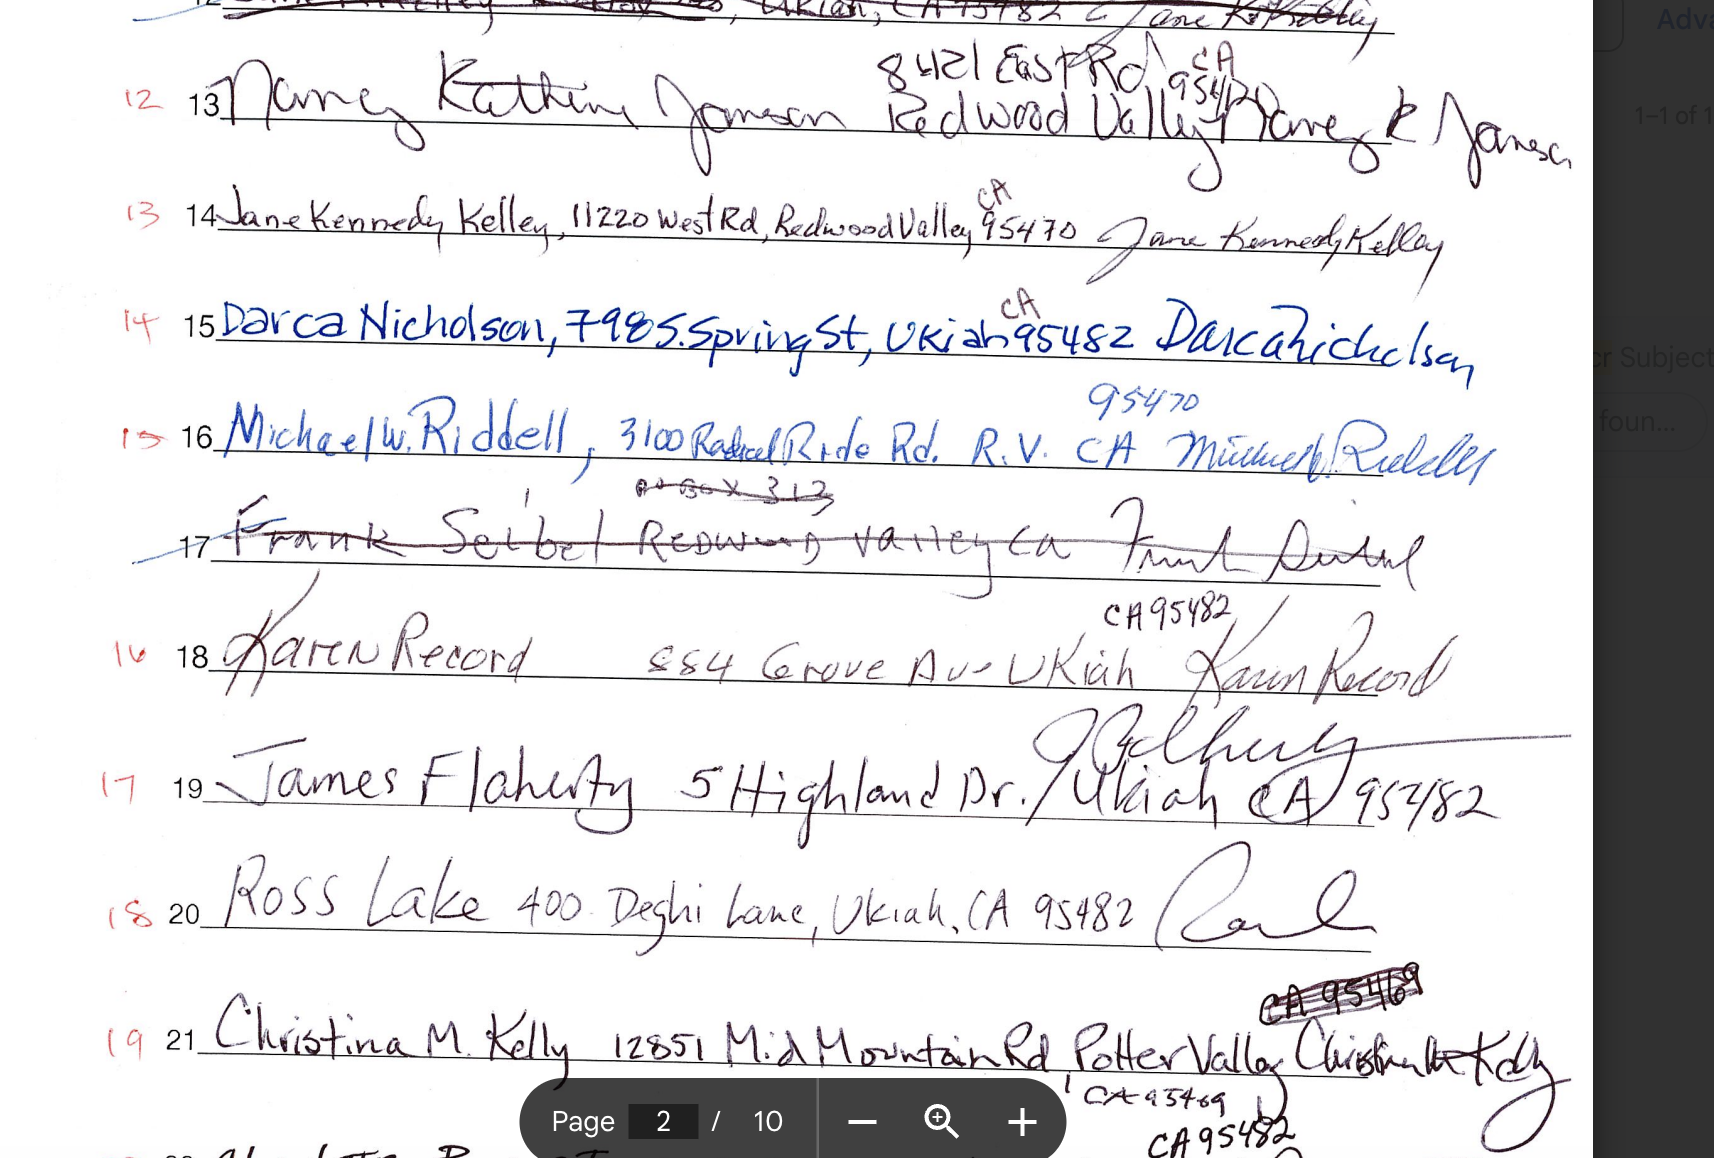 Ukiah, CA 95482 Jane K. Kelley
12 13 Nancy Katherine Jamison 8421 East Rd, Redwood Valley CA 95470 Nancy K Jamison
13 14 Jane Kennedy Kelley, 11220 West Rd, Redwood Valley, CA 95470 Jane Kennedy Kelley
14 15 Darca Nicholson, 798 S. Spring St, Ukiah CA 95482 Darca Nicholson
15 16 Michael W. Riddell, 3100 Road Rd. R.V. CA 95470
PO Box 313
17 Frank Seibel Redwood Valley Ca Frank Seibel
16 18 Karen Record 884 Grove Ave Ukiah CA 95482 Karen Record
17 19 James Flaherty 5 Highland Dr. / Ukiah CA 95482
18 20 Ross Lake 400 Deghi Lane, Ukiah, CA 95482
CA 95469
19 21 Christina M. Kelly 12851 Mid Mountain Rd Potter Valley Christina M Kelly
CA 95469
CA 95482
Page 2 / 10
Adva
1–1 of 1
or Subject
foun...